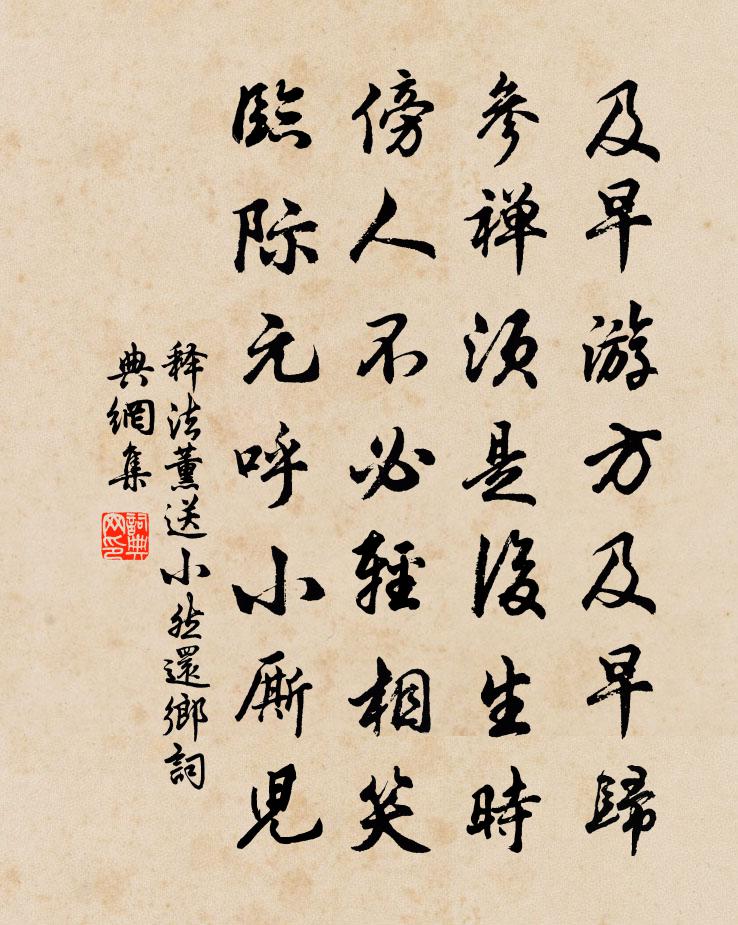 及早游方及早歸
參禅須是後生時
傍人不必輕相笑
臨际元呼小厮兒
释法薰送小然還鄉詞
典網集
詞典
网印